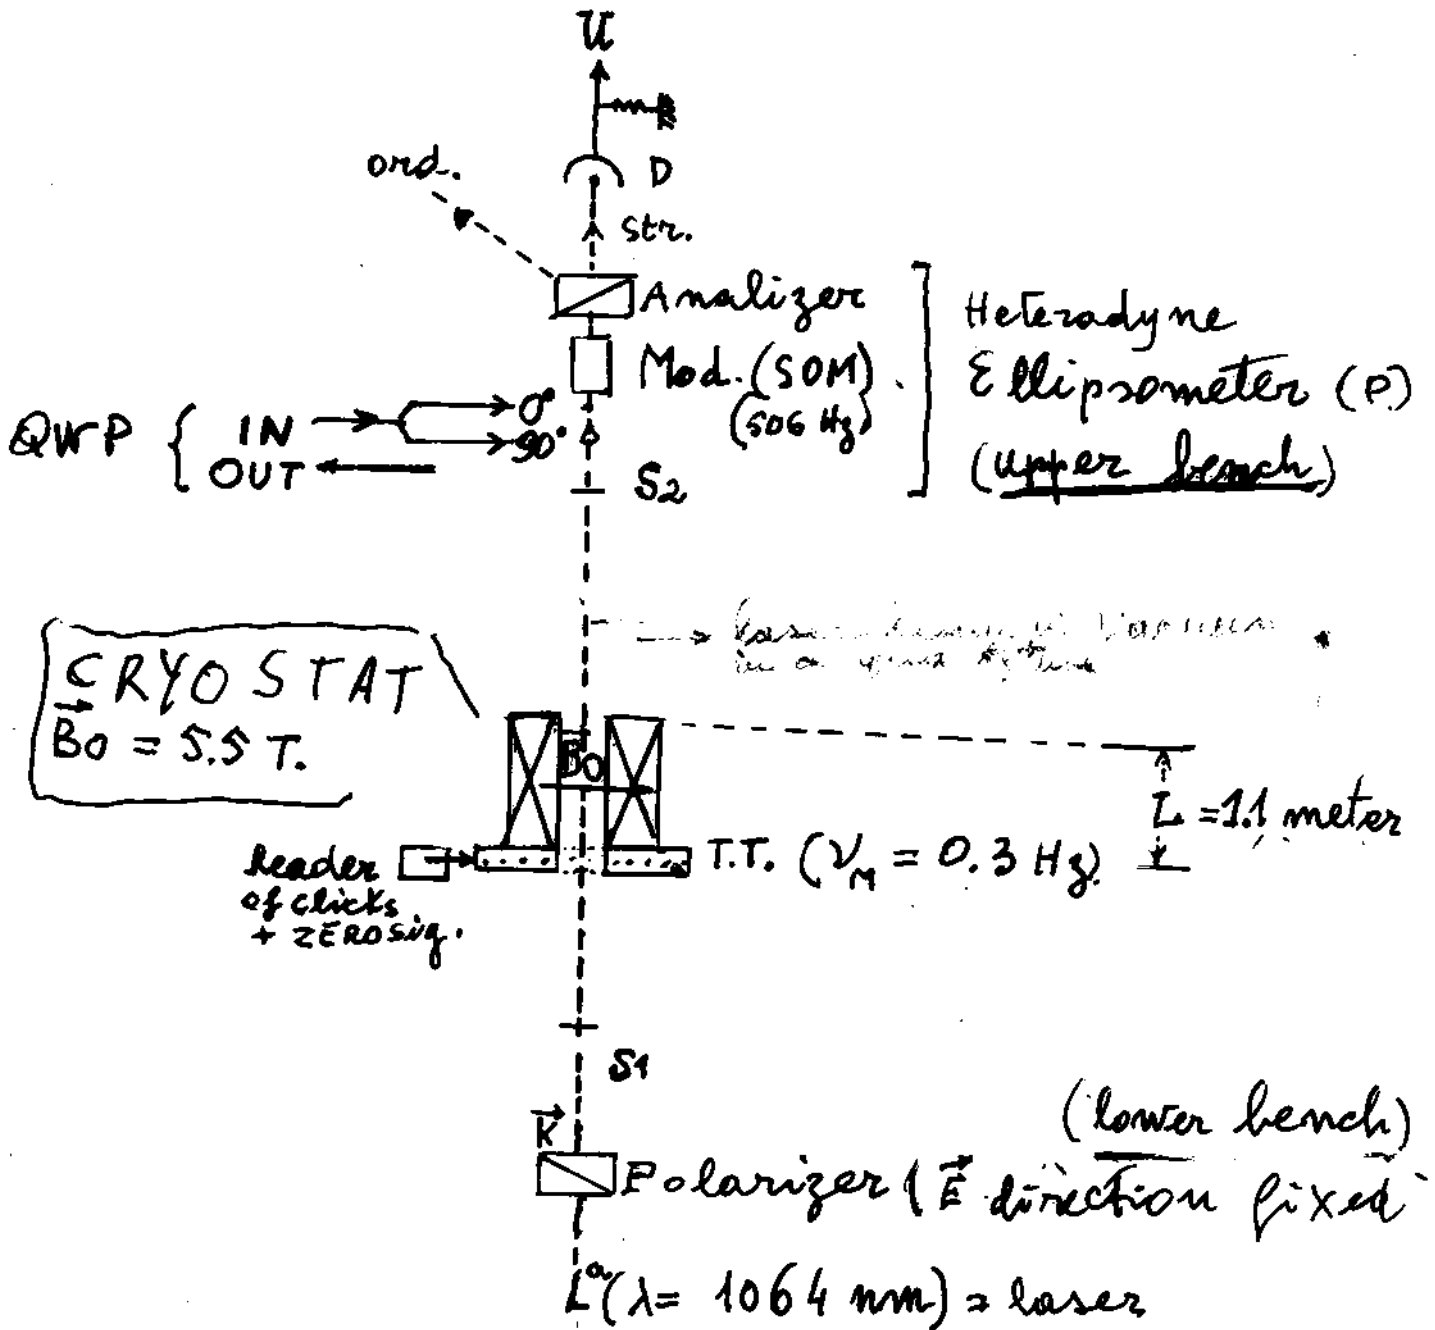 U
D
ord.
str.
Analizer
Mod. (SOM)
(506 Hz)
Heterodyne
Ellipsometer (P.)
(upper bench)
QWP { IN 0°
90°
OUT
S2
laser
in a
CRYOSTAT
B0 = 5.5 T.
B0
L = 1.1 meter
T.T. (νM = 0.3 Hz)
Reader
of clicks
+ ZERO sig.
S1
K
(lower bench)
Polarizer (E direction fixed
La (λ = 1064 nm) = laser